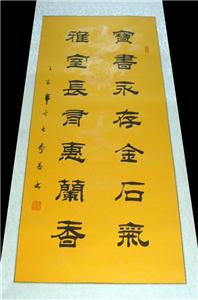 寶書永存金石氣
雅室長惠蘭香